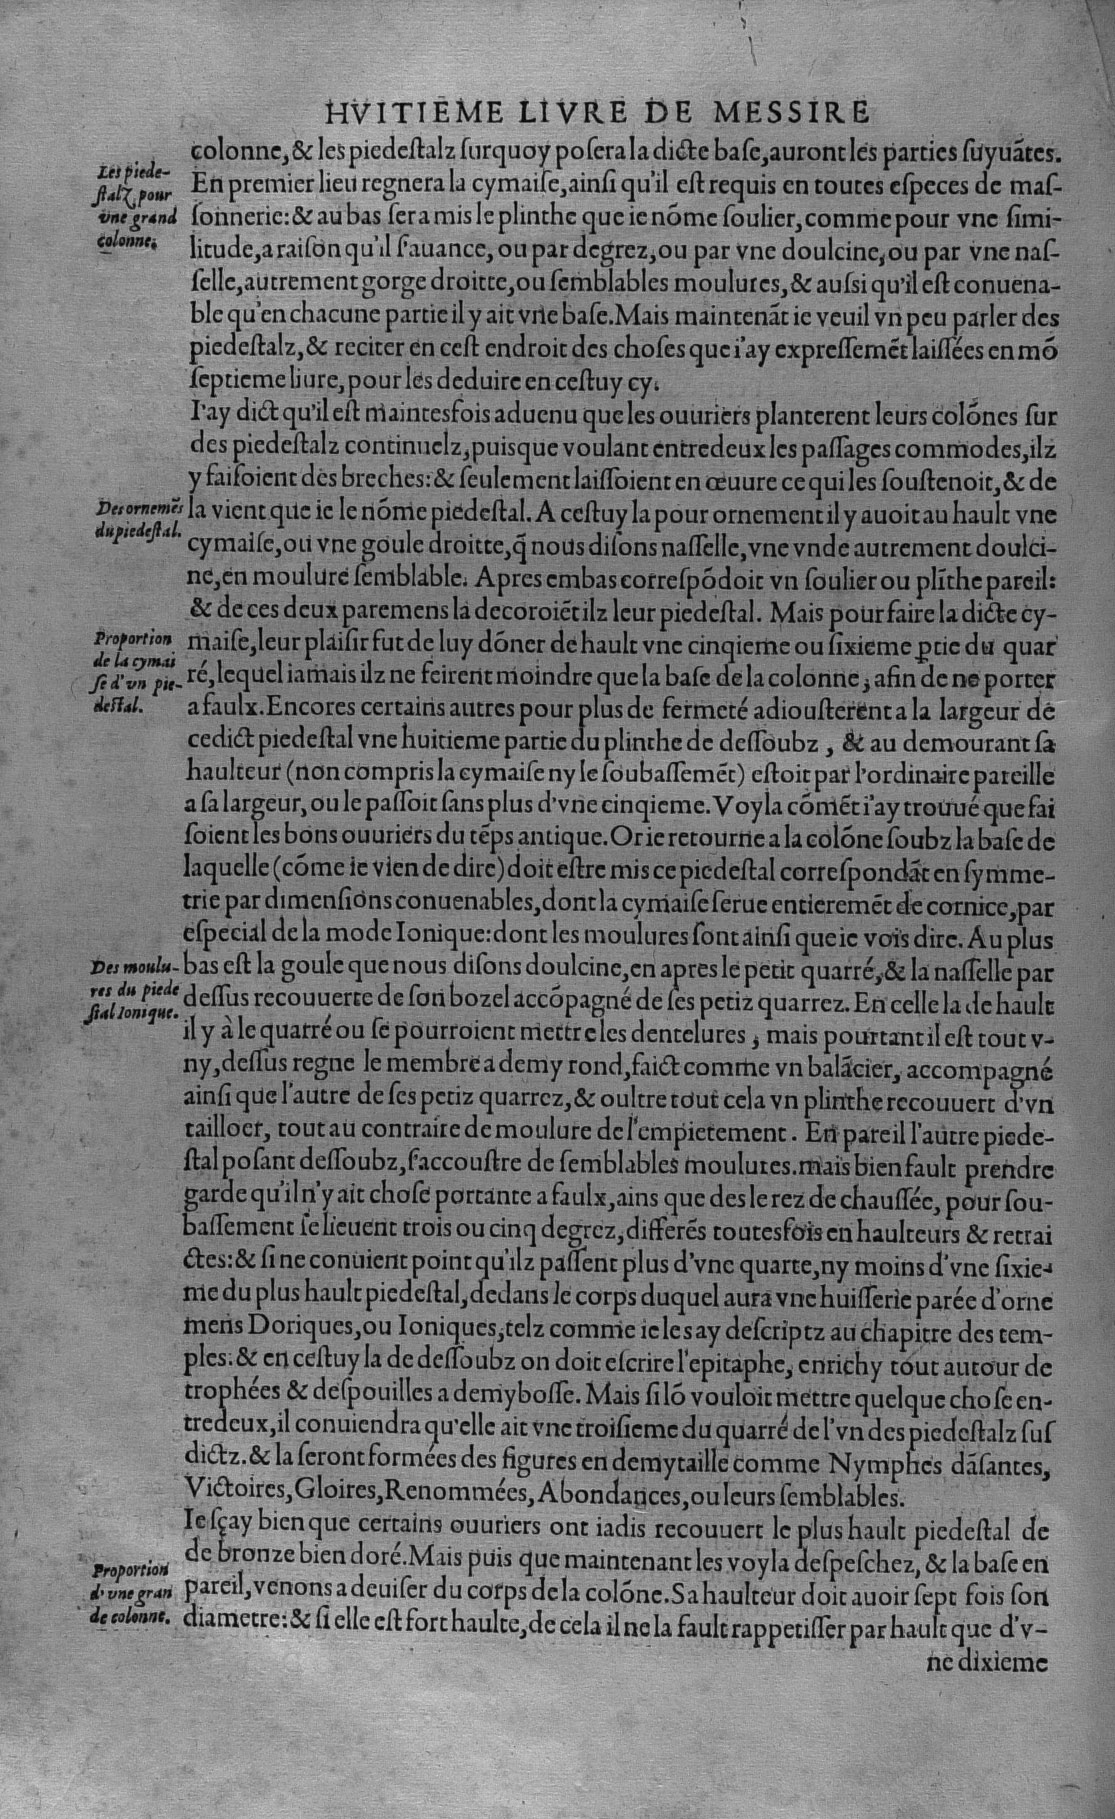 HVITIEME LIVRE DE MESSIRE
colonne, & les piedeſtalz ſurquoy poſera la dicte baſe, auront les parties ſuyuãtes.
Les piede-
ſtalz pour
vne grand
colonne.
En premier lieu regnera la cymaiſe, ainſi qu'il eſt requis en toutes eſpeces de maſ-
ſonnerie: & au bas ſera mis le plinthe que ie nõme ſoulier, comme pour vne ſimi-
litude, a raiſon qu'il ſ'auance, ou par degrez, ou par vne doulcine, ou par vne naſ-
ſelle, autrement gorge droitte, ou ſemblables moulures, & auſsi qu'il eſt conuena-
ble qu'en chacune partie il y ait vne baſe. Mais maintenãt ie veuil vn peu parler des
piedeſtalz, & reciter en ceſt endroit des choſes que i'ay expreſſemẽt laiſſées en mõ
ſeptieme liure, pour les deduire en ceſtuy cy.
I'ay dict qu'il eſt maintesfois aduenu que les ouuriers planterent leurs colõnes ſur
des piedeſtalz continuelz, puisque voulant entredeux les paſſages commodes, ilz
y faiſoient des breches: & ſeulement laiſſoient en œuure ce qui les ſouſtenoit, & de
Des ornemẽs
du piedeſtal.
la vient que ie le nõme piedeſtal. A ceſtuy la pour ornement il y auoit au hault vne
cymaiſe, ou vne goule droitte, q̃ nous diſons naſſelle, vne vnde autrement doulci-
ne, en moulure ſemblable. Apres embas correſpõdoit vn ſoulier ou plĩthe pareil:
& de ces deux paremens la decoroiẽt ilz leur piedeſtal. Mais pour faire la dicte cy-
Proportion
de la cymai
ſe d'vn pie-
deſtal.
maiſe, leur plaiſir fut de luy dõner de hault vne cinqieme ou ſixieme ꝑtie du quar
ré, lequel iamais ilz ne feirent moindre que la baſe de la colonne, afin de ne porter
a faulx. Encores certains autres pour plus de fermeté adiouſterent a la largeur de
cedict piedeſtal vne huitieme partie du plinthe de deſſoubz, & au demourant ſa
haulteur (non compris la cymaiſe ny le ſoubaſſemẽt) eſtoit par l'ordinaire pareille
a ſa largeur, ou le paſſoit ſans plus d'vne cinqieme. Voyla cõmẽt i'ay trouué que fai
ſoient les bons ouuriers du tẽps antique. Or ie retourne a la colõne ſoubz la baſe de
laquelle (cõme ie vien de dire) doit eſtre mis ce piedeſtal correſpondãt en ſymme-
trie par dimenſions conuenables, dont la cymaiſe ſerue entieremẽt de cornice, par
eſpecial de la mode Ionique: dont les moulures ſont ainſi que ie vois dire. Au plus
Des moulu-
res du piede
ſtal Ionique.
bas eſt la goule que nous diſons doulcine, en apres le petit quarré, & la naſſelle par
deſſus recouuerte de ſon bozel accõpagné de ſes petiz quarrez. En celle la de hault
il y à le quarré ou ſe pourroient mettre les dentelures, mais pourtant il eſt tout v-
ny, deſſus regne le membre a demy rond, faict comme vn balãcier, accompagné
ainſi que l'autre de ſes petiz quarrez, & oultre tout cela vn plinthe recouuert d'vn
tailloer, tout au contraire de moulure de l'empietement. En pareil l'autre piede-
ſtal poſant deſſoubz, ſ'accouſtre de ſemblables moulures. mais bien fault prendre
garde qu'il n'y ait choſe portante a faulx, ains que des le rez de chauſſée, pour ſou-
baſſement ſe lieuent trois ou cinq degrez, differẽs toutesfois en haulteurs & retrai
ctes: & ſi ne conuient point qu'ilz paſſent plus d'vne quarte, ny moins d'vne ſixie-
me du plus hault piedeſtal, dedans le corps duquel aura vne huiſſerie parée d'orne
mens Doriques, ou Ioniques, telz comme ie les ay deſcriptz au chapitre des tem-
ples: & en ceſtuy la de deſſoubz on doit eſcrire l'epitaphe, enrichy tout autour de
trophées & deſpouilles a demyboſſe. Mais ſi lõ vouloit mettre quelque choſe en-
tredeux, il conuiendra qu'elle ait vne troiſieme du quarré de l'vn des piedeſtalz ſuſ
dictz. & la ſeront formées des figures en demytaille comme Nymphes dãſantes,
Victoires, Gloires, Renommées, Abondances, ou leurs ſemblables.
Ie ſçay bien que certains ouuriers ont iadis recouuert le plus hault piedeſtal de
de bronze bien doré. Mais puis que maintenant les voyla deſpeſchez, & la baſe en
Proportion
d'vne gran
de colonne.
pareil, venons a deuiſer du corps de la colõne. Sa haulteur doit auoir ſept fois ſon
diametre: & ſi elle eſt fort haulte, de cela il ne la fault rappetiſſer par hault que d'v-
ne dixieme